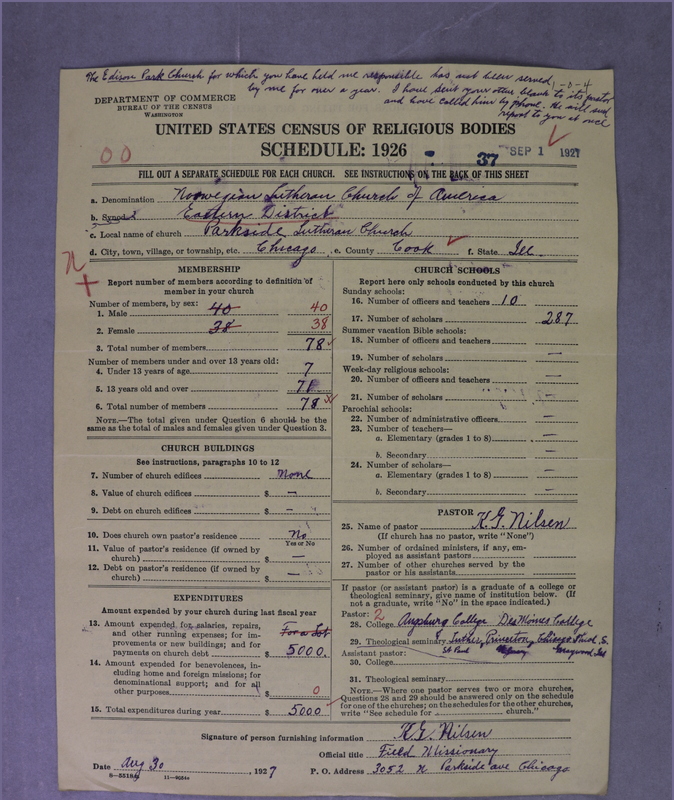 The Edison Park Church for which you have held me responsible has not been served
by me for over a year. I have sent your other blank to its pastor
and have called him by phone. He will send
report to you at once
1-D-4
DEPARTMENT OF COMMERCE
BUREAU OF THE CENSUS
WASHINGTON
UNITED STATES CENSUS OF RELIGIOUS BODIES
SCHEDULE: 1926
00
37
SEP 1 1927
FILL OUT A SEPARATE SCHEDULE FOR EACH CHURCH. SEE INSTRUCTIONS ON THE BACK OF THIS SHEET
a. Denomination Norwegian Lutheran Church of America
b. Synod Eastern District
c. Local name of church Parkside Lutheran Church
d. City, town, village, or township, etc. Chicago, e. County Cook f. State Ill.
MEMBERSHIP
Report number of members according to definition of
member in your church
Number of members, by sex:
1. Male 40 40
2. Female 38 38
3. Total number of members 78
Number of members under and over 13 years old:
4. Under 13 years of age 7
5. 13 years old and over 71
6. Total number of members 78
NOTE.—The total given under Question 6 should be the
same as the total of males and females given under Question 3.
CHURCH BUILDINGS
See instructions, paragraphs 10 to 12
7. Number of church edifices None
8. Value of church edifices $ —
9. Debt on church edifices $ —
10. Does church own pastor's residence No
Yes or No
11. Value of pastor's residence (if owned by
church) $ —
12. Debt on pastor's residence (if owned by
church) $ —
EXPENDITURES
Amount expended by your church during last fiscal year
13. Amount expended for salaries, repairs,
and other running expenses; for im-
provements or new buildings; and for
payments on church debt $ 5000.
For a Lot
14. Amount expended for benevolences, in-
cluding home and foreign missions; for
denominational support; and for all
other purposes $ 0
15. Total expenditures during year $ 5000
CHURCH SCHOOLS
Report here only schools conducted by this church
Sunday schools:
16. Number of officers and teachers 10
17. Number of scholars 287
Summer vacation Bible schools:
18. Number of officers and teachers —
19. Number of scholars —
Week-day religious schools:
20. Number of officers and teachers —
21. Number of scholars —
Parochial schools:
22. Number of administrative officers —
23. Number of teachers—
a. Elementary (grades 1 to 8) —
b. Secondary —
24. Number of scholars—
a. Elementary (grades 1 to 8) —
b. Secondary —
PASTOR
25. Name of pastor K.G. Nilsen
(If church has no pastor, write "None")
26. Number of ordained ministers, if any, em-
ployed as assistant pastors
27. Number of other churches served by the
pastor or his assistants
If pastor (or assistant pastor) is a graduate of a college or
theological seminary, give name of institution below. (If
not a graduate, write "No" in the space indicated.)
Pastor: 2
28. College Augsburg College Des Moines College
29. Theological seminary Luther, Princeton, Chicago S.
Assistant pastor: St Paul
30. College
31. Theological seminary
NOTE.—Where one pastor serves two or more churches,
Questions 28 and 29 should be answered only on the schedule
for one of the churches; on the schedules for the other churches,
write "See schedule for church."
Signature of person furnishing information K.G. Nilsen
Official title Field Missionary
Date Aug 30, 1927 P. O. Address 3052 N Parkside ave Chicago
11—9584